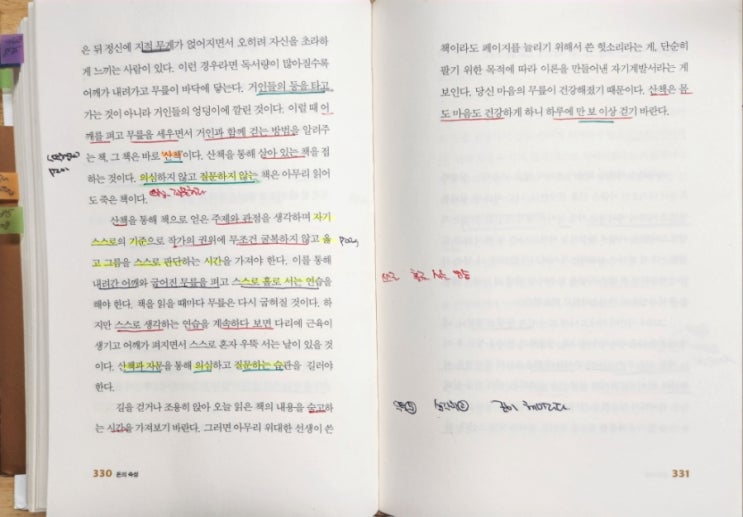 은 뒤 정신에 지적 무게가 얹어지면서 오히려 자신을 초라하
게 느끼는 사람이 있다. 이런 경우라면 독서량이 많아질수록
어깨가 내려가고 무릎이 바닥에 닿는다. 거인들의 등을 타고
가는 것이 아니라 거인들의 엉덩이에 깔린 것이다. 이럴 때 어
깨를 펴고 무릎을 세우면서 거인과 함께 걷는 방법을 알려주
는 책, 그 책은 바로 '산책'이다. 산책을 통해 살아 있는 책을 접
하는 것이다. 의심하지 않고 질문하지 않는 책은 아무리 읽어
도 죽은 책이다.
산책을 통해 책으로 얻은 주제와 관점을 생각하며 자기
스스로의 기준으로 작가의 권위에 무조건 굴복하지 않고 옳
고 그름을 스스로 판단하는 시간을 가져야 한다. 이를 통해
내려간 어깨와 굽어진 무릎을 펴고 스스로 홀로 서는 연습을
해야 한다. 책을 읽을 때마다 무릎은 다시 굽혀질 것이다. 하
지만 스스로 생각하는 연습을 계속하다 보면 다리에 근육이
생기고 어깨가 펴지면서 스스로 혼자 우뚝 서는 날이 있을 것
이다. 산책과 자문을 통해 의심하고 질문하는 습관을 길러야
한다.
길을 걷거나 조용히 앉아 오늘 읽은 책의 내용을 숙고하
는 시간을 가져보기 바란다. 그러면 아무리 위대한 선생이 쓴
330 돈의 속성
책이라도 페이지를 늘리기 위해서 쓴 헛소리라는 게, 단순히
팔기 위한 목적에 따라 이론을 만들어낸 자기계발서라는 게
보인다. 당신 마음의 무릎이 건강해졌기 때문이다. 산책은 몸
도 마음도 건강하게 하니 하루에 만 보 이상 걷기 바란다.
331